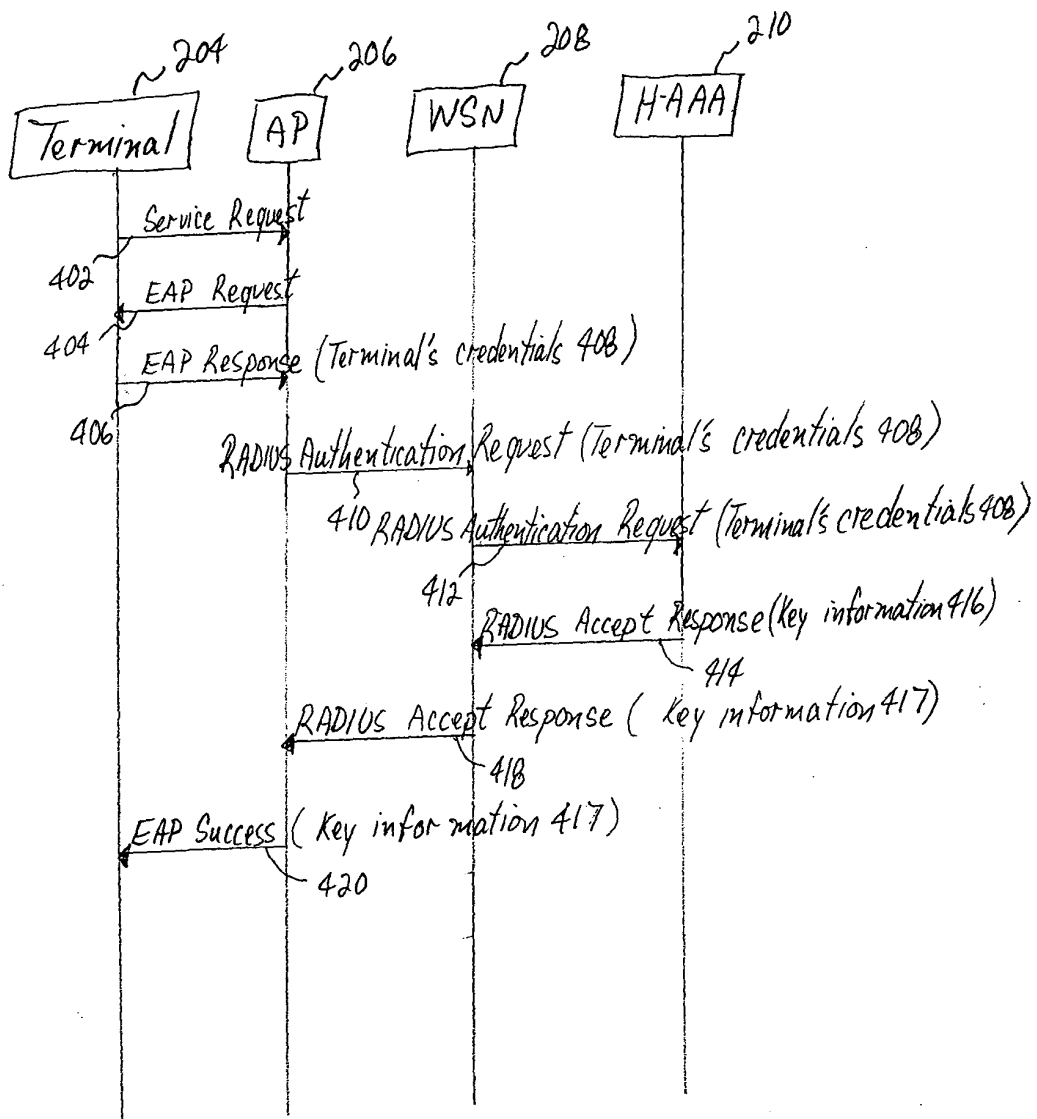 204
206
208
210
Terminal
AP
WSN
H-AAA
Service Request
402
EAP Request
404
EAP Response (Terminal's credentials 408)
406
RADIUS Authentication Request (Terminal's credentials 408)
410
RADIUS Authentication Request (Terminal's credentials 408)
412
RADIUS Accept Response (Key information 416)
414
RADIUS Accept Response ( Key information 417)
418
EAP Success ( Key information 417)
420